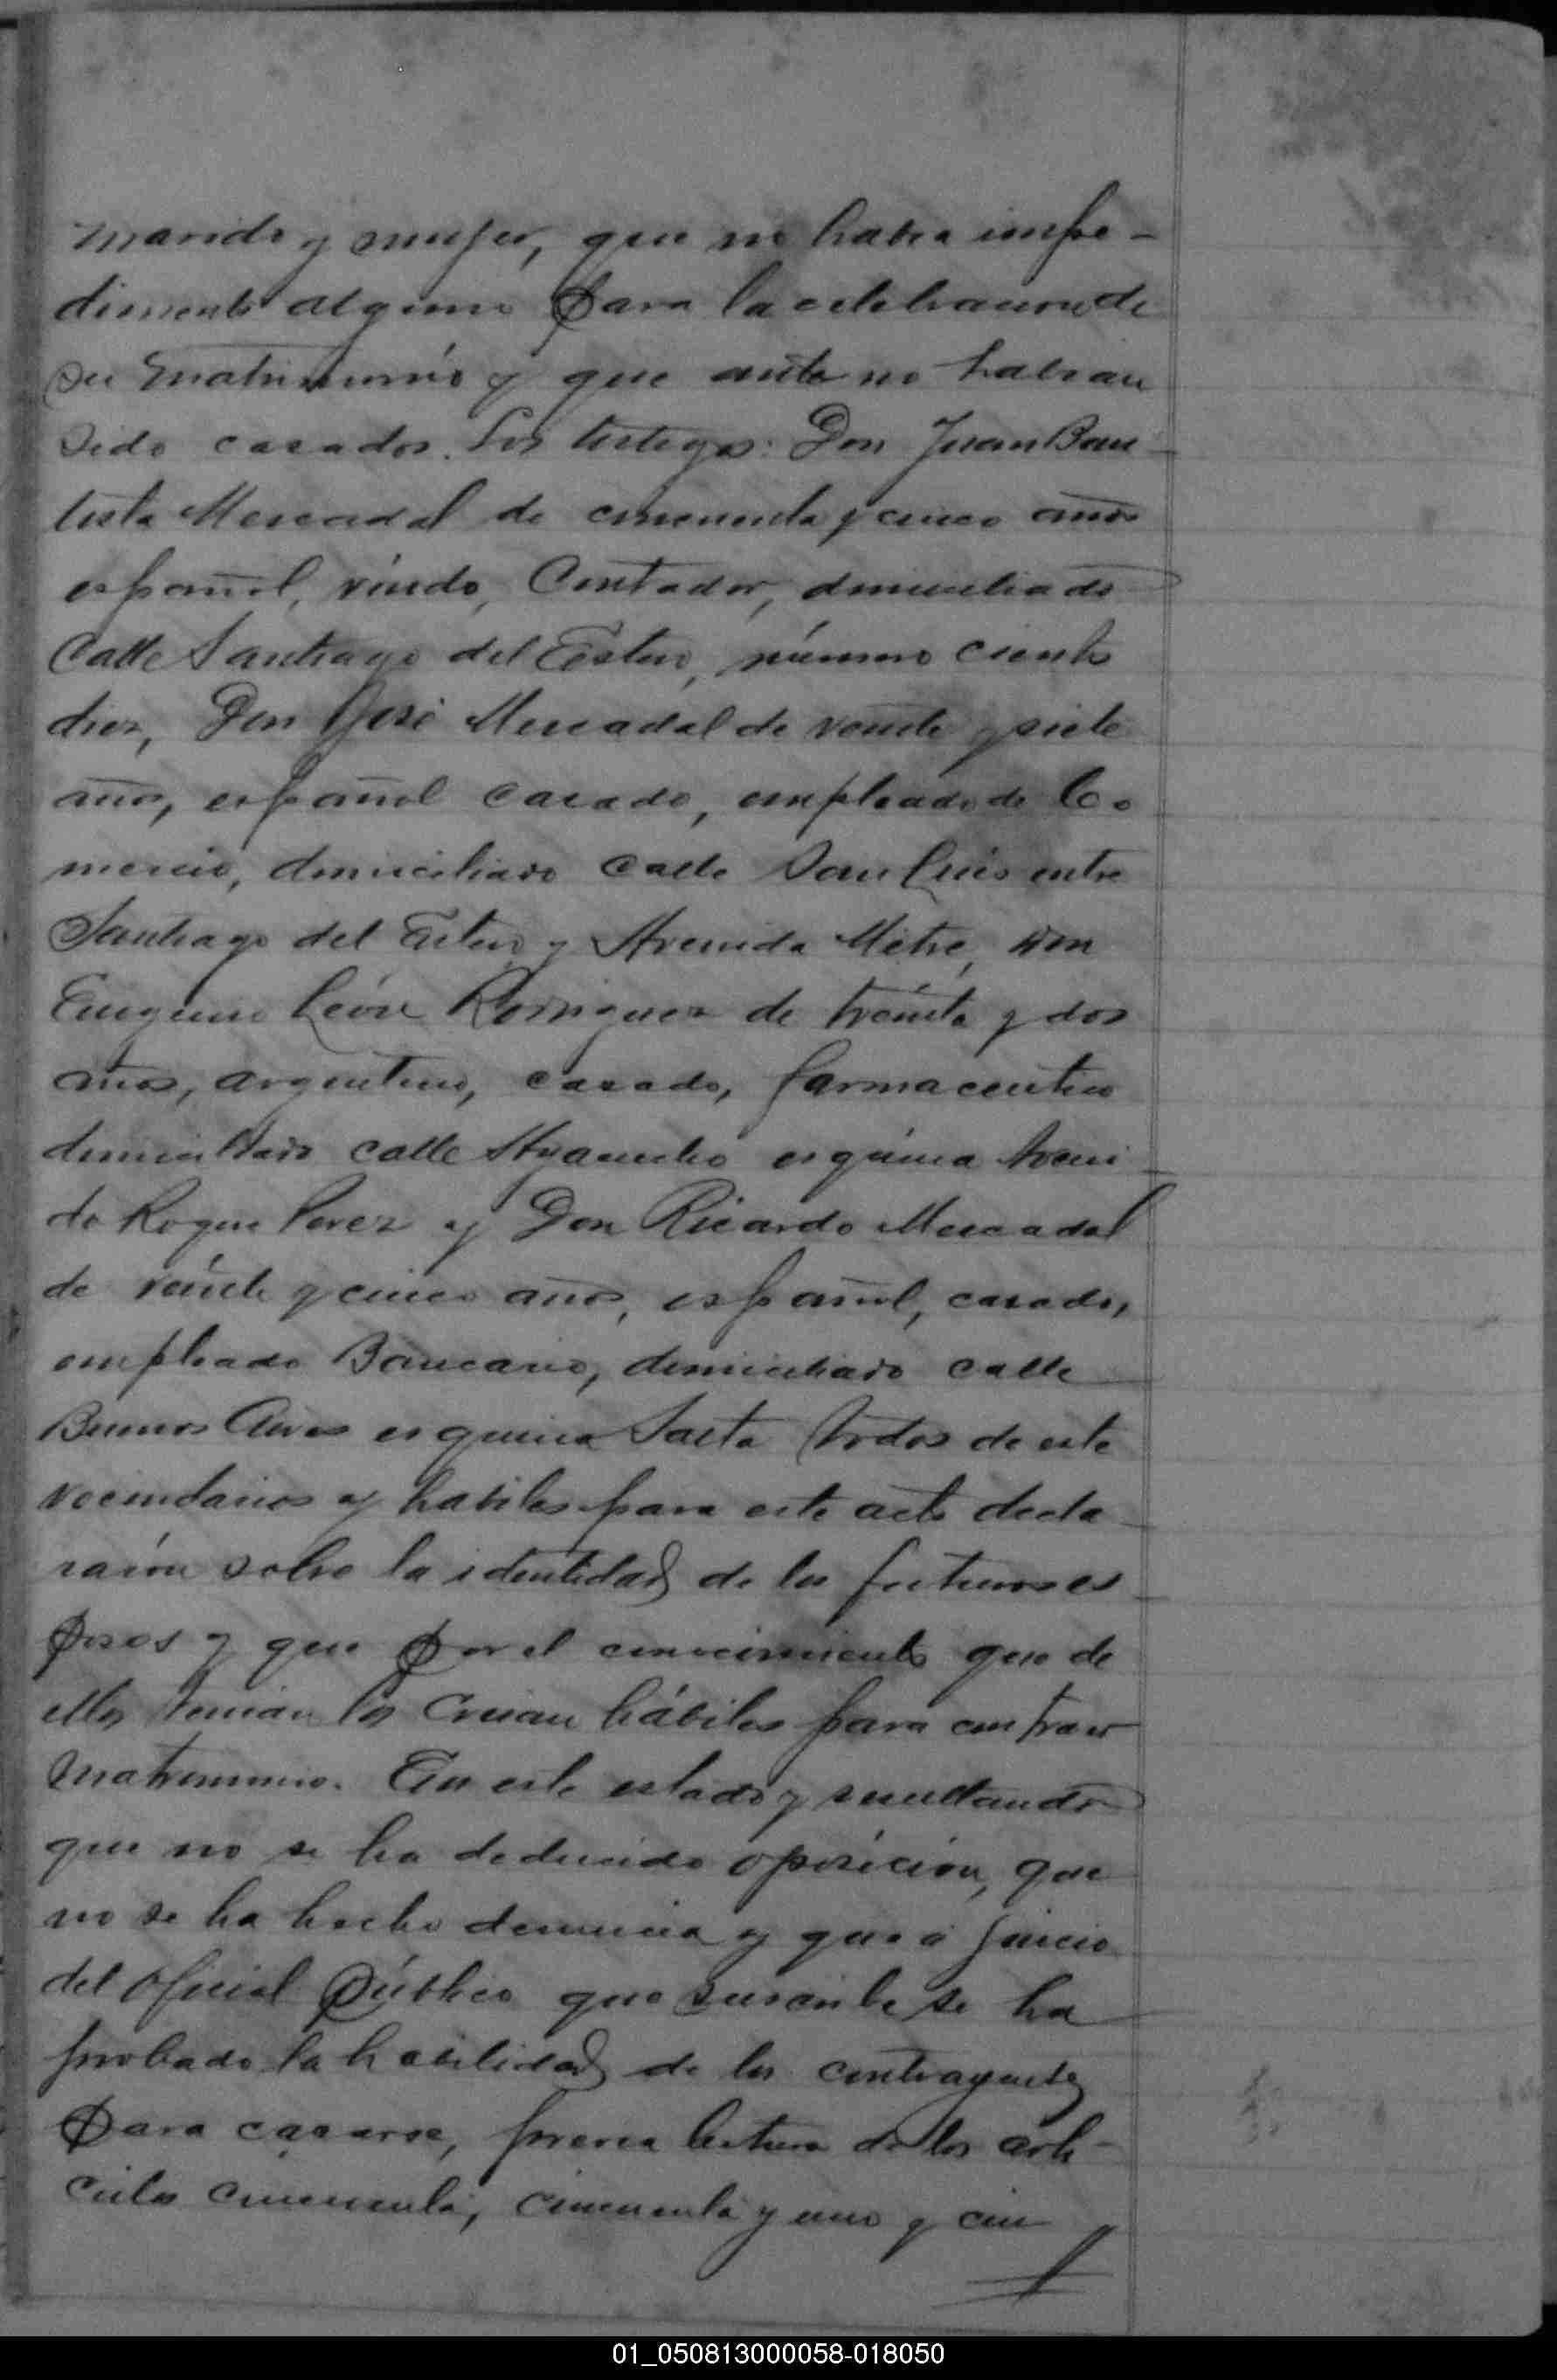 marido y mujer, que no habia impe-
dimento alguno para la celebracion de
su matrimonio y que antes no habian
sido casados. Los testigos: Don Juan Bau-
tista Mercadal de cincuenta y cinco años
español, viudo, Contador, domiciliado
Calle Santiago del Estero, número ciento
diez, Don José Mercadal de veinte y siete
años, español casado, empleado de Co-
mercio, domiciliado calle San Luis entre
Santiago del Estero y Avenida Mitre, Don
Eugenio León Rodriguez de treinta y dos
años, argentino, casado, farmaceutico
domiciliado calle Ayacucho esquina Aveni-
da Roque Perez y Don Ricardo Mercadal
de veinte y cinco años, español, casado,
empleado Bancario, domiciliado calle
Buenos Aires esquina Salta todos de este
vecindarios y habiles para este acto decla-
raron sobre la identidad de los futuros es-
posos y que por el conocimiento que de
ellos tenian los creian hábiles para contraer
matrimonio. En este estado y resultando
que no se ha deducido oposición, que
no se ha hecho denuncia y que á juicio
del oficial Público que suscribe se ha
probado la habilidad de los contrayentes
para casarse, previa lectura de los arti-
culos cincuenta, cincuenta y uno y cin
01_050813000058-018050